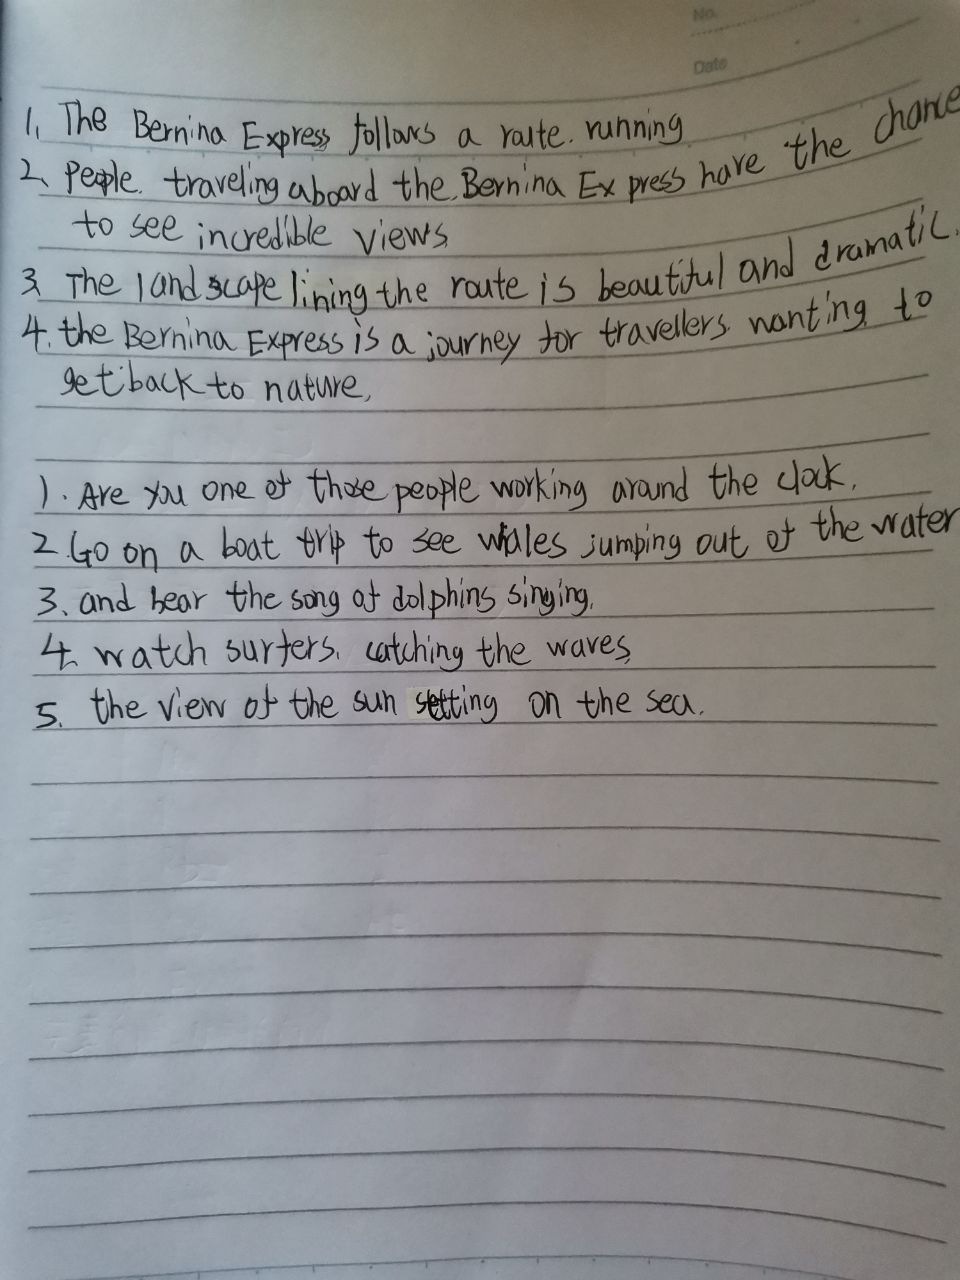 No.
Date
1. The Bernina Express follows a route. running
2. People. traveling aboard the Bernina Express have the chance
to see incredible views
3. The landscape lining the route is beautiful and dramatic.
4. the Bernina Express is a journey for travellers wanting to
get back to nature.
1. Are you one of those people working around the clock.
2. Go on a boat trip to see whales jumping out of the water
3. and hear the song of dolphins singing.
4. watch surfers. catching the waves
5. the view of the sun setting on the sea.